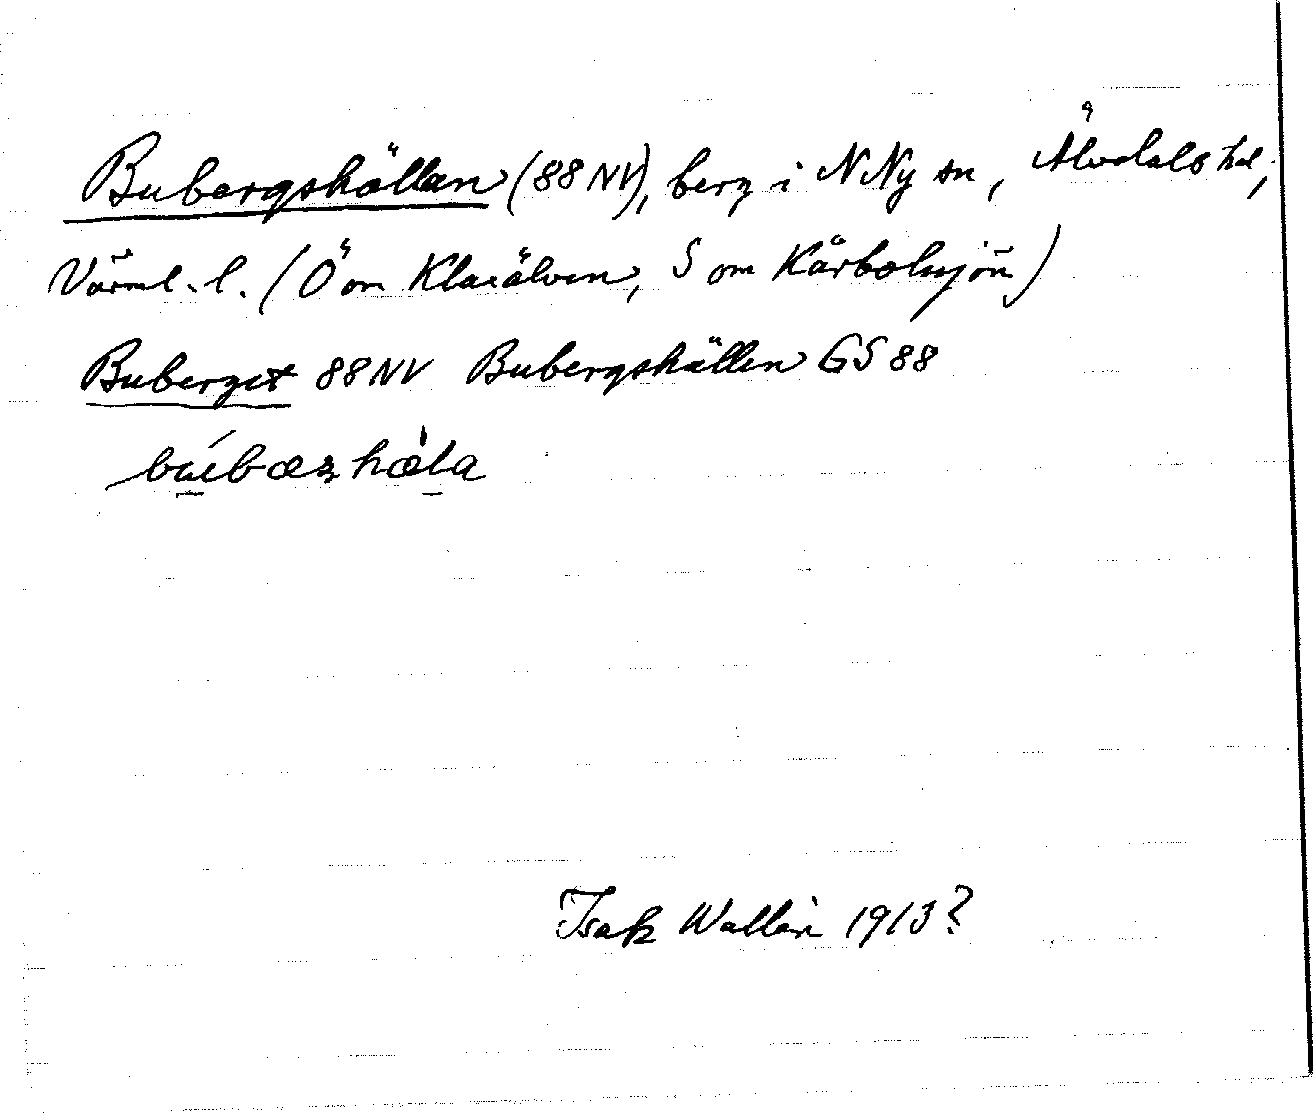 Bubergshällen (88 NV), berg i N Ny sn, Älvdals hd,
Värml. l. (Ö om Klarälven, S om Kärbolsjön)
Buberget 88 NV Bubergshällen GS 88
Isak Wallin 1913?